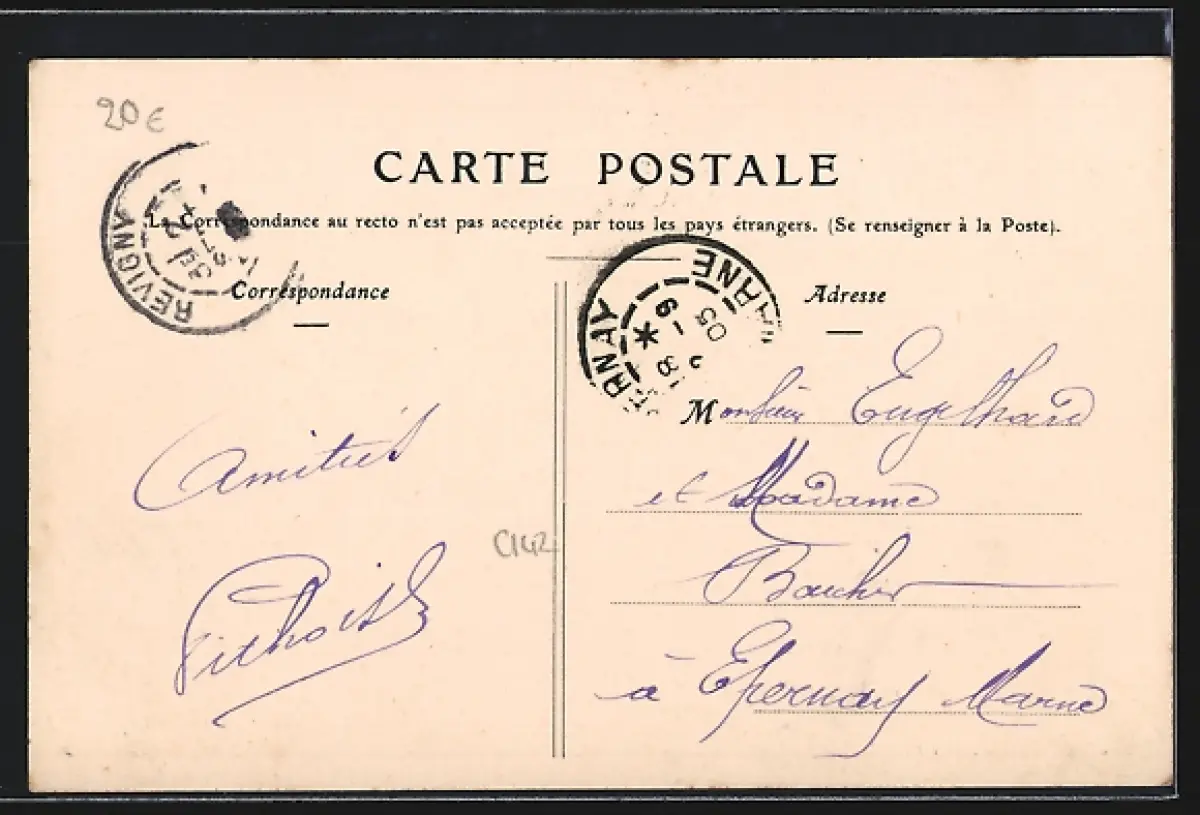 20€
CARTE POSTALE
La Correspondance au recto n'est pas acceptée par tous les pays étrangers. (Se renseigner à la Poste).
REVIGNY
ERNAY MARNE
9 - 3
05
Correspondance
Adresse
Monsieur Engelhard
et Madame
Boucher
à Epernay Marne
Amitiés
C142